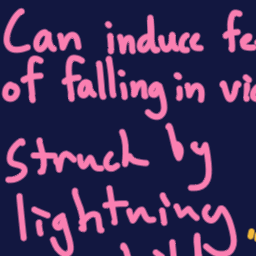 Can induce fe
of falling in vi
Struck by
lightning